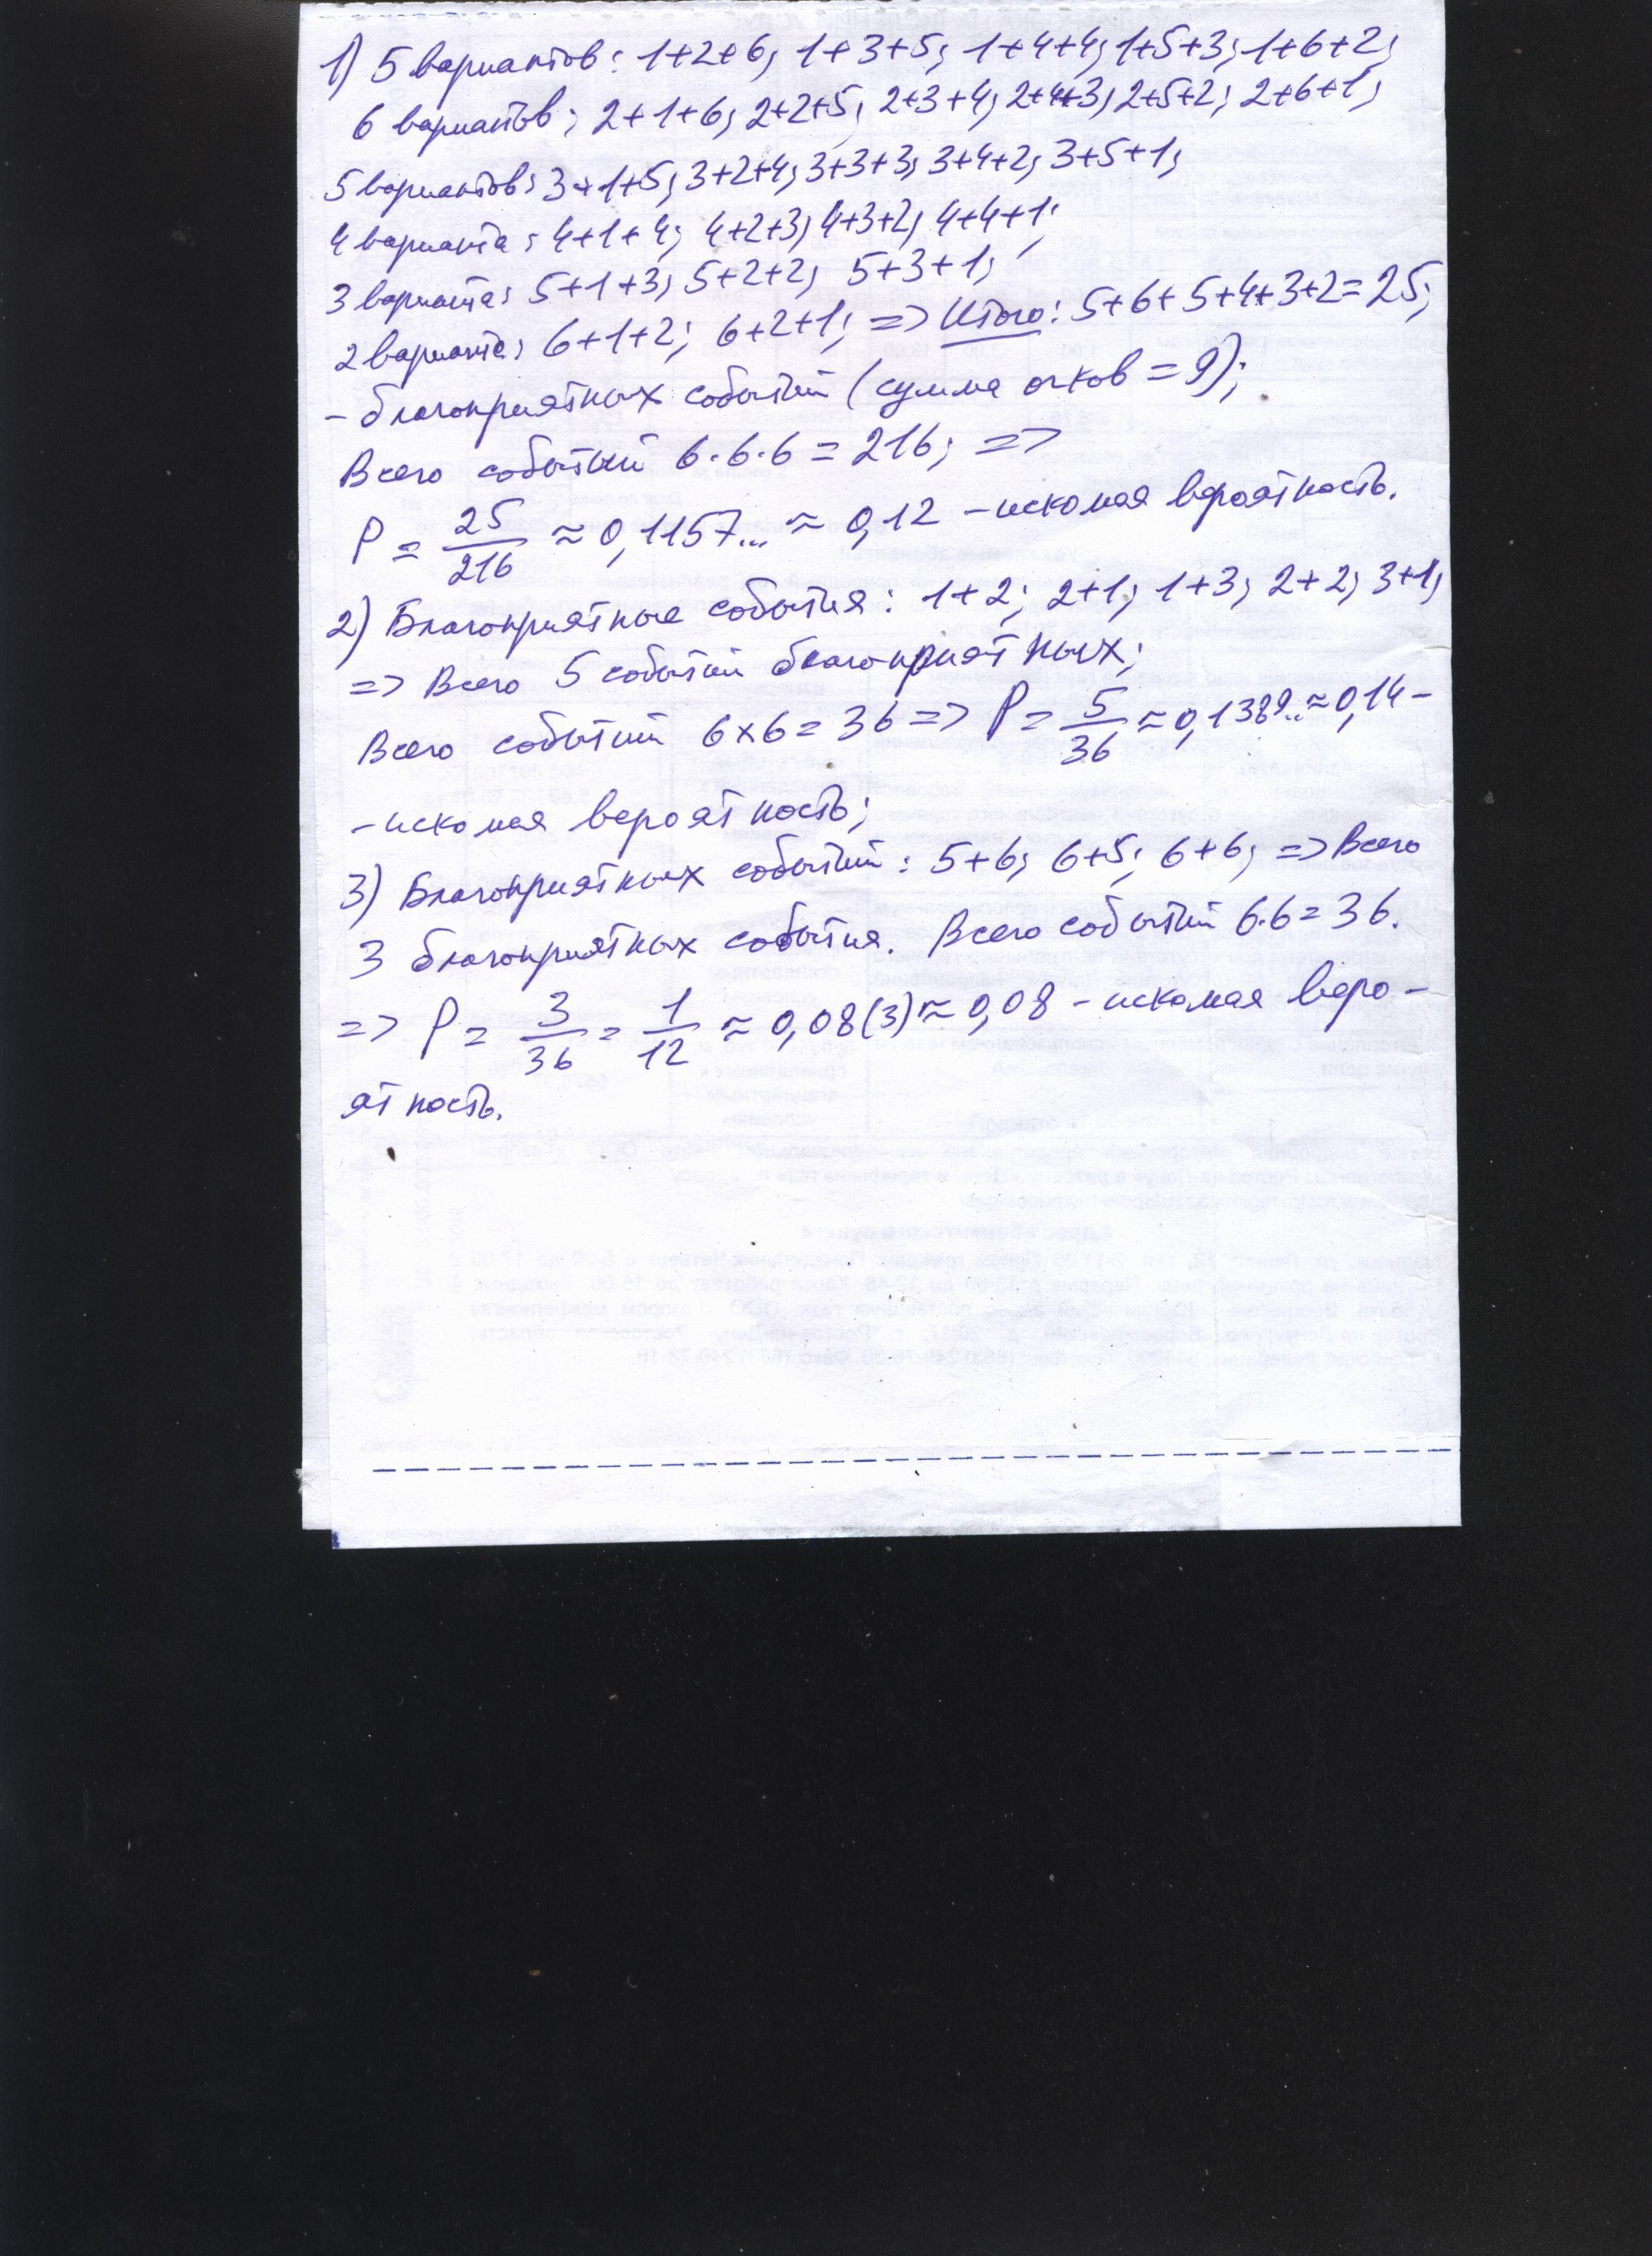 1) 5 вариантов: 1+2+6; 1+3+5; 1+4+4; 1+5+3; 1+6+2;
6 вариантов; 2+1+6; 2+2+5; 2+3+4; 2+4+3; 2+5+2; 2+6+1;
5 вариантов: 3+1+5; 3+2+4; 3+3+3; 3+4+2; 3+5+1;
4 варианта: 4+1+4; 4+2+3; 4+3+2; 4+4+1;
3 варианта: 5+1+3; 5+2+2; 5+3+1;
2 варианта: 6+1+2; 6+2+1; => Итого: 5+6+5+4+3+2=25;
- благоприятных событий (сумма очков = 9);
Всего событий 6·6·6 = 216; =>
P = 25/216 ≈ 0,1157... ≈ 0,12 - искомая вероятность.
2) Благоприятные события: 1+2; 2+1; 1+3; 2+2; 3+1;
=> Всего 5 событий благоприятных;
Всего событий 6×6=36 => P = 5/36 ≈ 0,1389.. ≈ 0,14 -
- искомая вероятность;
3) Благоприятных событий: 5+6; 6+5; 6+6; => Всего
3 благоприятных события. Всего событий 6·6=36.
=> P = 3/36 = 1/12 ≈ 0,08(3) ≈ 0,08 - искомая веро-
ятность.